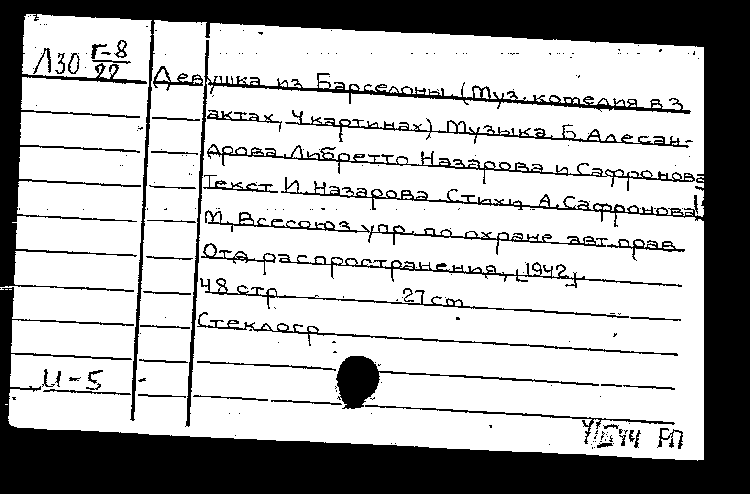 Л30 Г-8
22
Девушка из Барселоны. (Муз. комедия в 3
актах, 4 картинах) Музыка Б. Алесан-
дрова. Либретто Назарова и Сафронова
Текст И. Назарова Стихи А. Сафронова
М., Всесоюз. упр. по охране авт. прав
Отд распространения, [1942].
48 стр. 27 cm
Стеклогр
И-5
44 РП